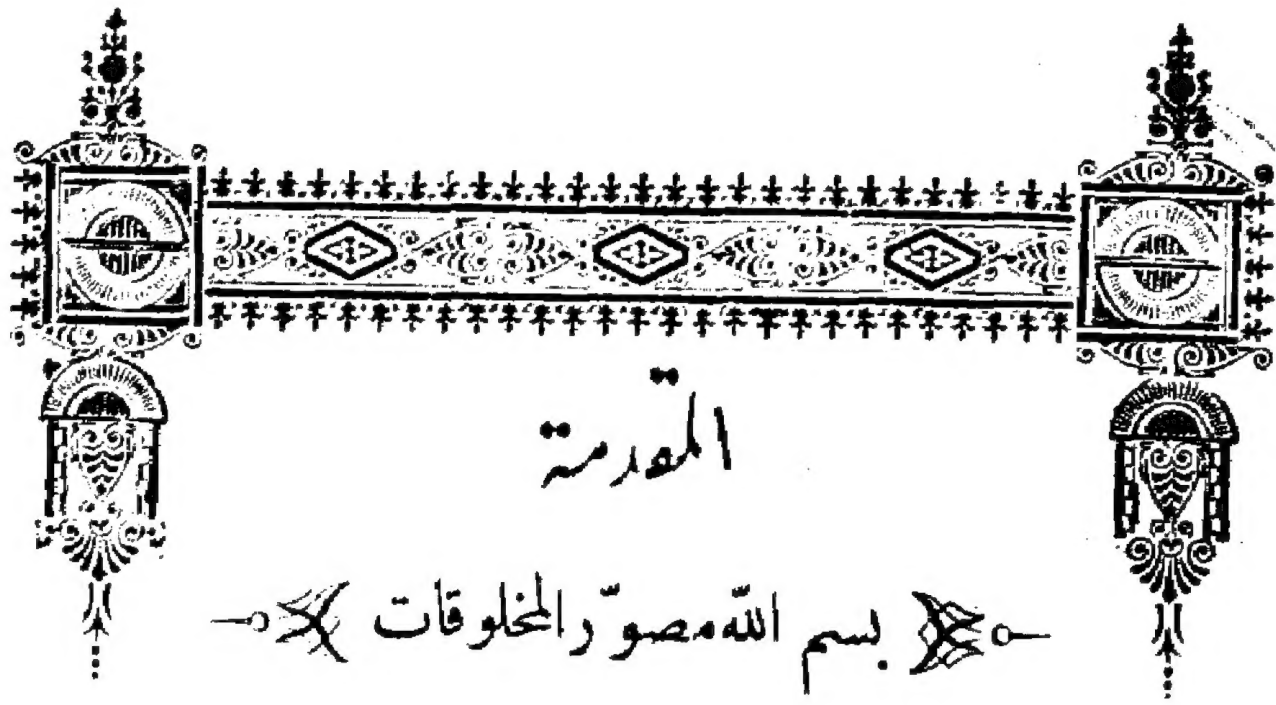 المقدمة
بسم الله مصوّر المخلوقات